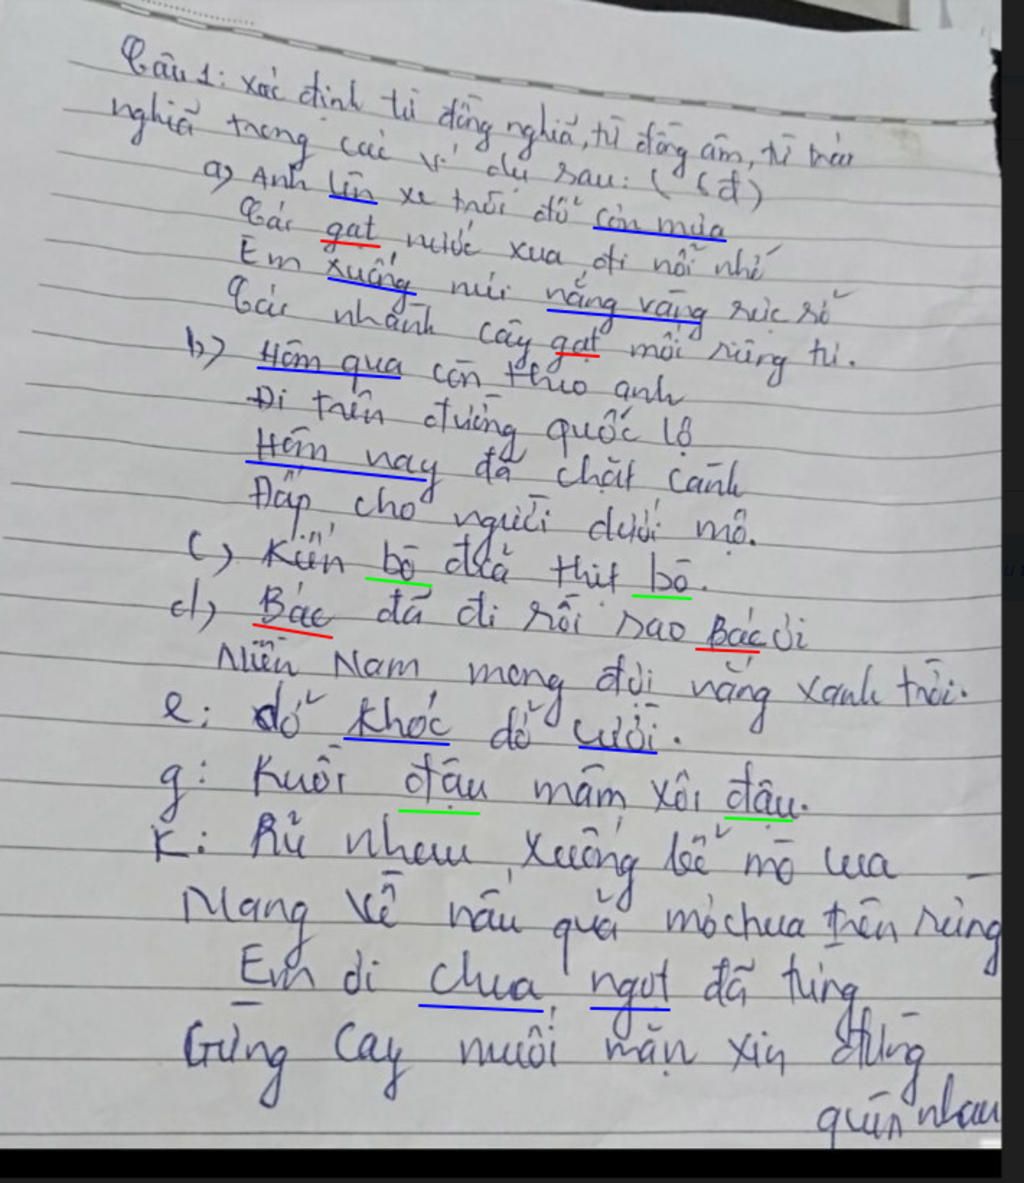 Câu 1: xác định từ đồng nghĩa, từ đồng âm, từ trái
nghĩa trong các ví dụ sau: (6đ)
a) Anh lên xe trời đổ cơn mưa
Cái gạt nước xua đi nỗi nhớ
Em xuống núi nắng vàng rực rỡ
Cái nhành cây gạt mối riêng tư.
b) Hôm qua còn theo anh
Đi trên đường quốc lộ
Hôm nay đã chặt cành
Đắp cho người dưới mộ.
c) Kiến bò đĩa thịt bò.
d) Bác đã đi rồi sao Bác ơi
Miền Nam mong đợi nắng xanh trời.
e: dở khóc dở cười.
g: Ruồi đậu mâm xôi đậu.
k: Rủ nhau xuống bể mò cua
Mang về nấu quả mơ chua trên rừng
Em đi chua ngọt đã từng
Gừng cay muối mặn xin đừng
quên nhau